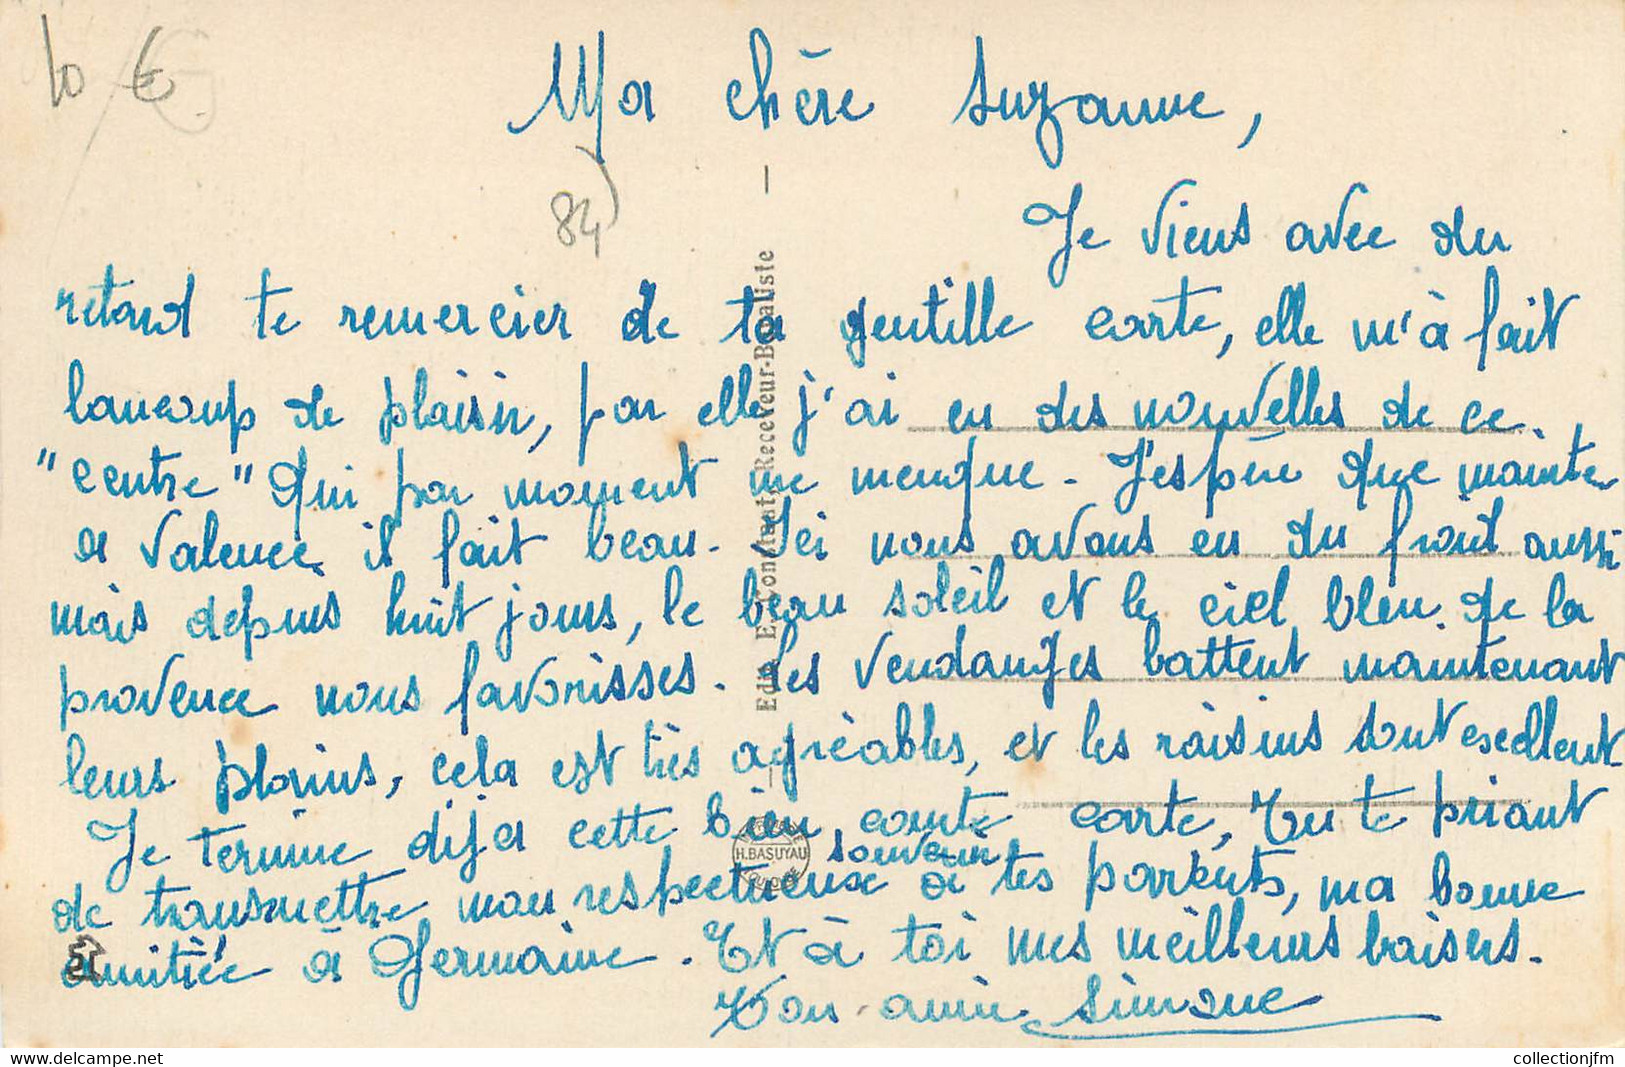 10 €
Ma chère Suzanne,
84)
Je viens avec du
retard te remercier de ta gentille carte, elle m'à fait
baucoup de plaisir, par elle j'ai eu des nouvelles de ce
"centre" qui par moment me menque. J'espère que mainte
a Valence il fait beau. Ici nous avons eu du froid aussi
mais depuis huit jours, le beau soleil et le ciel bleu de la
provence nous favorisses. Les vendanges battent maintenant
leurs plains, cela est très agréables, et les raisins sont excellent
Je termine dija cette bien courte carte, En te priant
de transmettre mon respectueux souvenir a tes parents, ma bonne
amitiée a Germaine. Et à toi mes meilleurs baisers.
Ton amie Simone
Edit. E. Constant, Receveur-Buraliste —
H. BASUYAU
TOULOUSE
collectionjfm